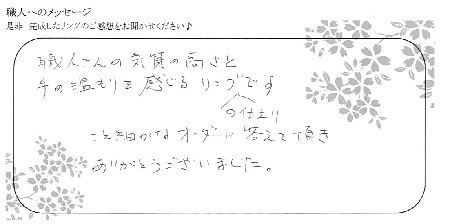 職人へのメッセージ
是非 完成したリングのご感想をお聞かせください♪
職人さんの気質の高さと
手の温もりを感じるリングです
の仕上り
こと細かなオーダーに答えて頂き
ありがとうございました。